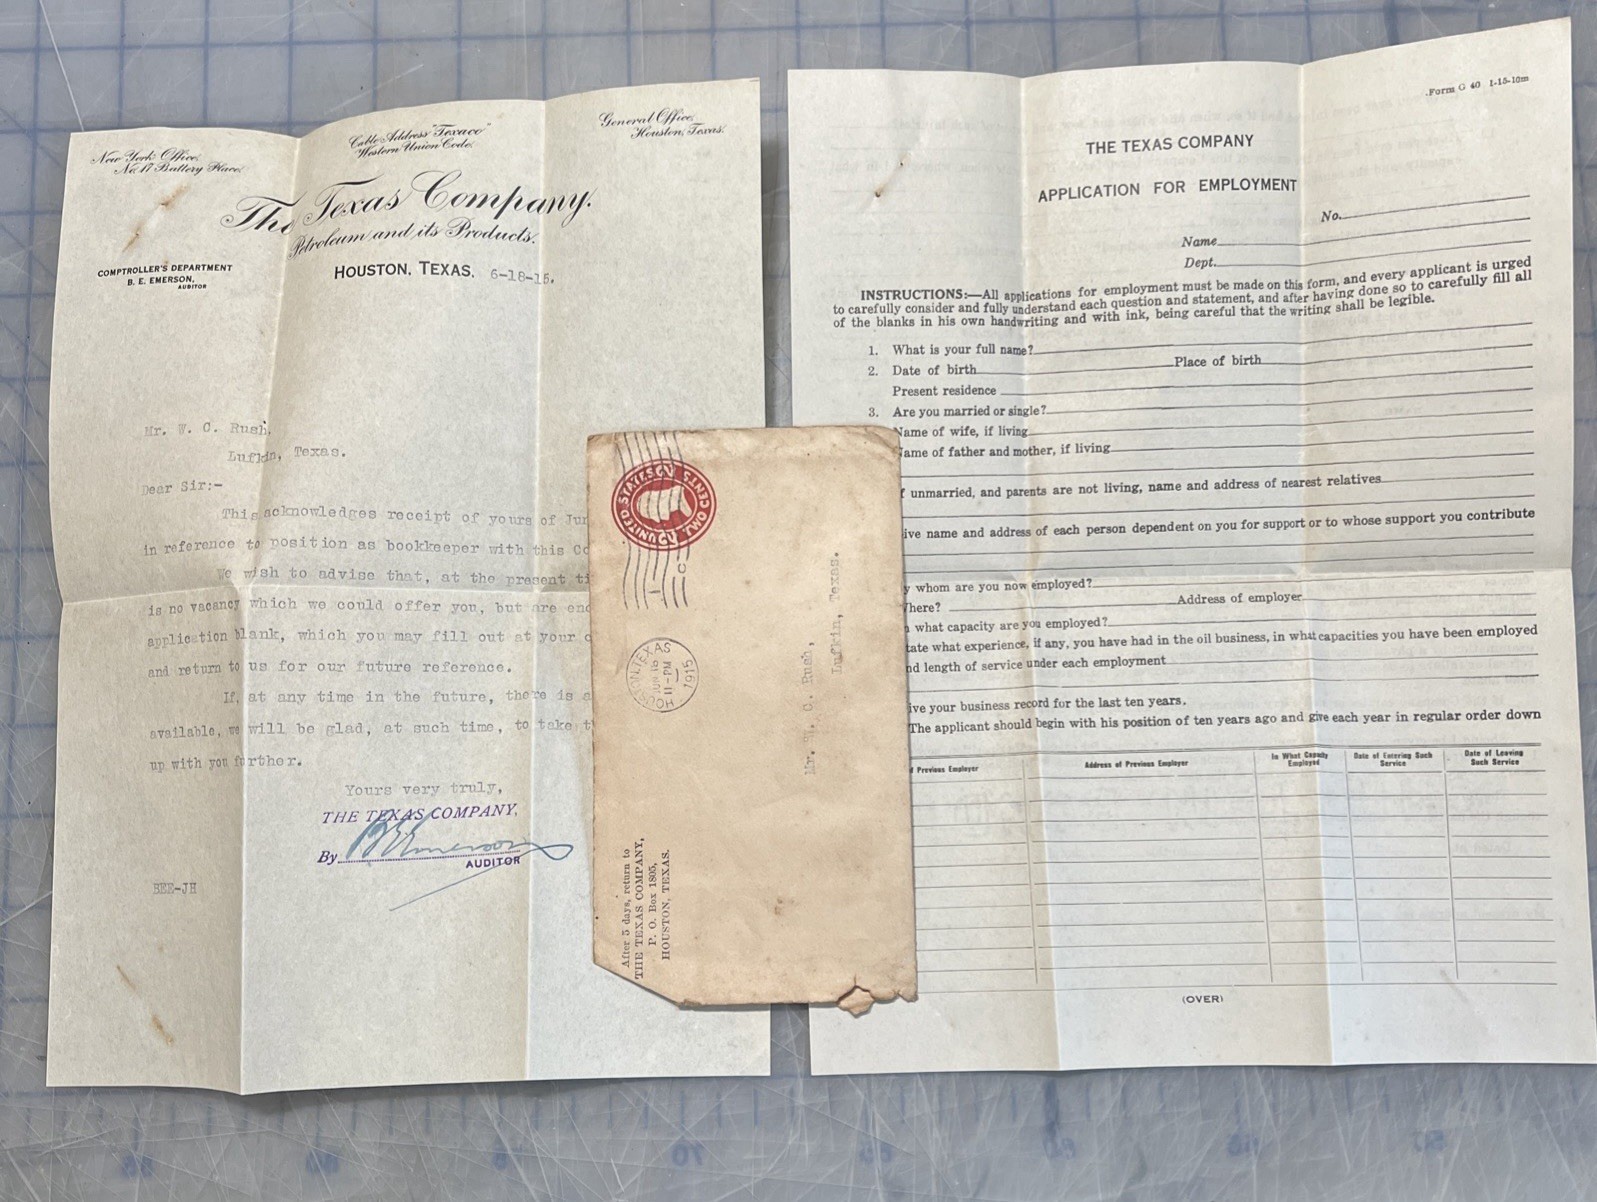 New York Office,
No. 17 Battery Place.
Cable Address "Texaco"
Western Union Code.
General Office,
Houston, Texas.
The Texas Company.
Petroleum and its Products.
COMPTROLLER'S DEPARTMENT
B. E. EMERSON,
AUDITOR
HOUSTON, TEXAS, 6-18-15.
Mr. W. C. Rush,
Lufkin, Texas.
Dear Sir:-
This acknowledges receipt of yours of
in reference to position as bookkeeper with this
We wish to advise that, at the present
is no vacancy which we could offer you, but are
application blank, which you may fill out at your
and return to us for our future reference.
If, at any time in the future, there is
available, we will be glad, at such time, to take
up with you further.
Yours very truly,
THE TEXAS COMPANY,
By B E Emerson
AUDITOR
BEE-JH
UNITED STATES TWO CENTS
HOUSTON, TEXAS
JUN 18
11-PM
1915
Mr. W. C. Rush,
Lufkin, Texas.
After 5 days, return to
THE TEXAS COMPANY,
P. O. Box 1805,
HOUSTON, TEXAS.
Form G 40 1-15-10m
THE TEXAS COMPANY
APPLICATION FOR EMPLOYMENT
No.
Name
Dept.
INSTRUCTIONS:—All applications for employment must be made on this form, and every applicant is urged
to carefully consider and fully understand each question and statement, and after having done so to carefully fill all
of the blanks in his own handwriting and with ink, being careful that the writing shall be legible.
1. What is your full name?
2. Date of birth Place of birth
Present residence
3. Are you married or single?
Name of wife, if living
Name of father and mother, if living
unmarried, and parents are not living, name and address of nearest relatives
ive name and address of each person dependent on you for support or to whose support you contribute
y whom are you now employed?
here? Address of employer
what capacity are you employed?
tate what experience, if any, you have had in the oil business, in what capacities you have been employed
nd length of service under each employment
ive your business record for the last ten years.
The applicant should begin with his position of ten years ago and give each year in regular order down
f Previous Employer Address of Previous Employer In What Capacity Employed Date of Entering Such Service Date of Leaving Such Service
(OVER)